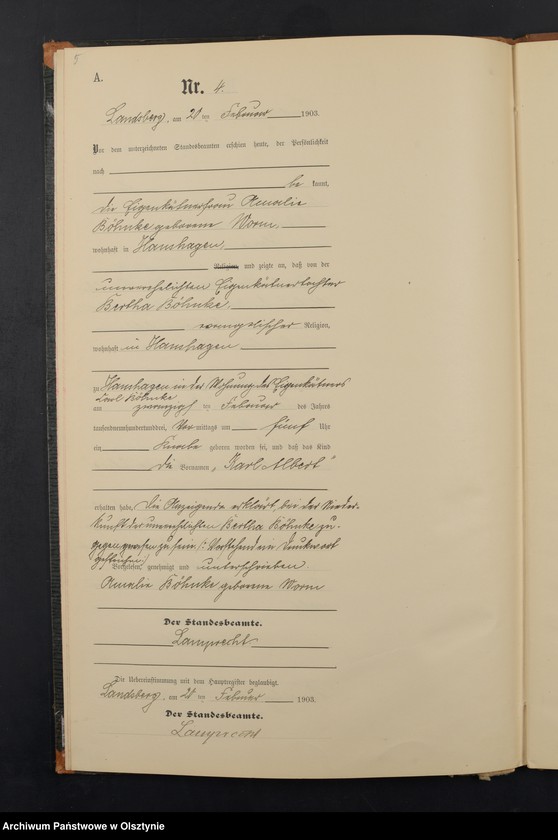 5
A.
Nr. 4.
Landsberg, am 20 ten Februar 1903.
Vor dem unterzeichneten Standesbeamten erschien heute, der Persönlichkeit
nach
be kannt,
die Eigenkätnerfrau Amalie
Böhnke geborene Worm
wohnhaft in Hanshagen
Religion und zeigte an, daß von der
unverehelichten Eigenkätnertochter
Bertha Böhnke
evangelischer Religion,
wohnhaft in Hanshagen
zu Hanshagen in der Wohnung des Eigenkätners
Karl Böhnke
am zwanzigsten Februar des Jahres
tausendneunhundertunddrei, Vor mittags um fünf Uhr
ein Knabe geboren worden sei, und daß das Kind
die Vornamen „Karl Albert“
erhalten habe. Die Anzeigende erklärt, bei der Nieder-
kunft der unverehelichten Bertha Böhnke zu-
gegen gewesen zu sein /: Vorstehend ein Druckwort
gestrichen
Vorgelesen, genehmigt und unterschrieben
Amalie Böhnke geborene Worm
Der Standesbeamte.
Lamprecht
Die Uebereinstimmung mit dem Hauptregister beglaubigt.
Landsberg, am 20 ten Februar 1903.
Der Standesbeamte.
Lamprecht
Archiwum Państwowe w Olsztynie